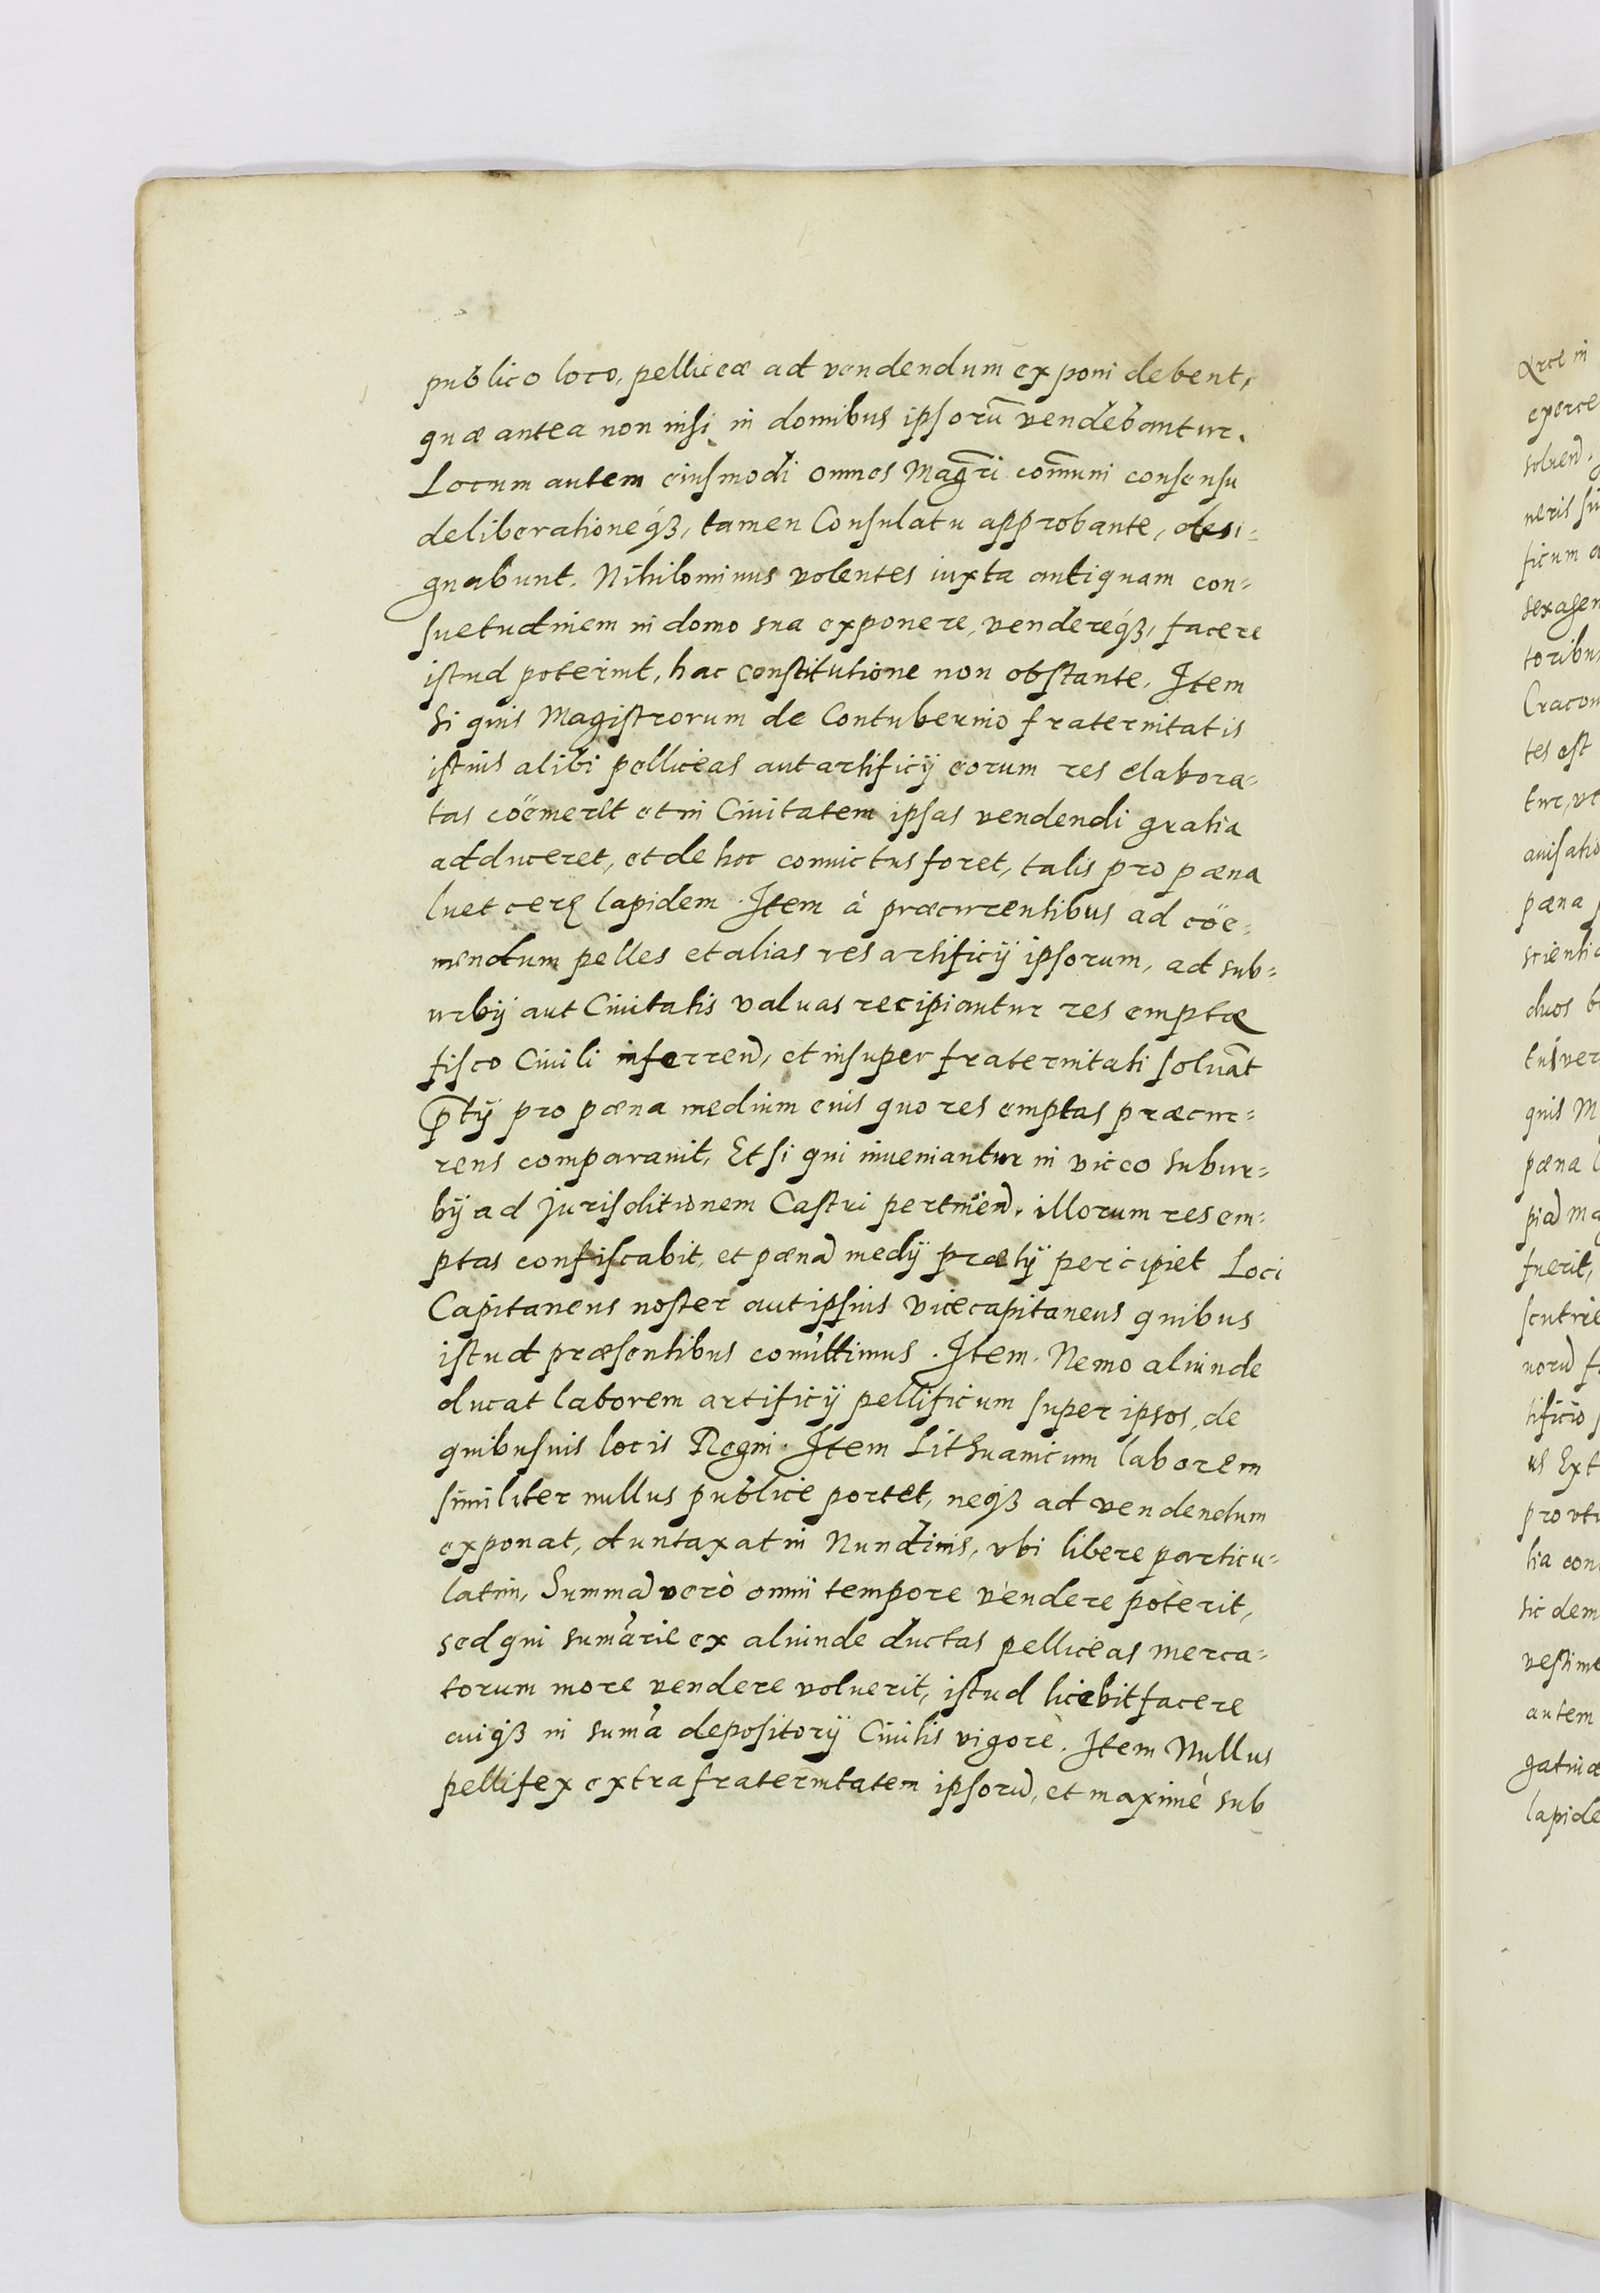 publico loco, pelliceæ ad vendendum exponi debent,
quæ antea non nisi in domibus ipsorū vendebantur.
Locum autem eiusmodi omnes Magr̄i com̄uni consensu
deliberationeq́ꝫ, tamen Consulatu approbante, desi-
gnabunt. Nihilominus volentes iuxta antiquam con-
suetudinem in domo sua exponere, vendereq́ꝫ, facere
istud poterint, hac constitutione non obstante. Item
si quis Magistrorum de Contubernio fraternitatis
istius alibi pelliceas aut artificij eorum res elabora-
tas cöemerit et in Ciuitatem ipsas vendendi gratia
adduceret, et de hoc conuictus foret, talis pro pæna
luet cerę lapidem. Item à præcurrentibus ad cöe-
mendum pelles et alias res artificij ipsorum, ad sub-
urbij aut Ciuitatis valuas recipiantur res emptæ
fisco Ciuili inferrend, et insuper fraternitati soluāt
p̄tij pro pæna medium eius quo res emptas præcur-
rens comparauit, Et si qui inueniantur in vicco subur-
bij ad Jurisditionem Castri pertinen̄. illorum res em-
ptas confiscabit, et pænā medij prætij percipiet Loci
Capitaneus noster aut ipsius vicecapitaneus quibus
istud præsentibus com̄ittimus. Item. Nemo aliunde
ducat laborem artificij pellificum super ipsos, de
quibusuis locis Regni. Item Lithuanicum laborem
similiter nullus publice portet, neqꝫ ad vendendum
exponat, duntaxat in Nundinis, vbi libere particu-
latim, Summā verò omni tempore vendere poterit,
sed qui sum̄arie ex aliunde ductas pelliceas merca-
torum more vendere voluerit, istud licebit facere
cuiqꝫ in sum̄a depositorij Ciuilis vigore. Item Nullus
pellifex extra fraternitatem ipsorū, et maximè sub